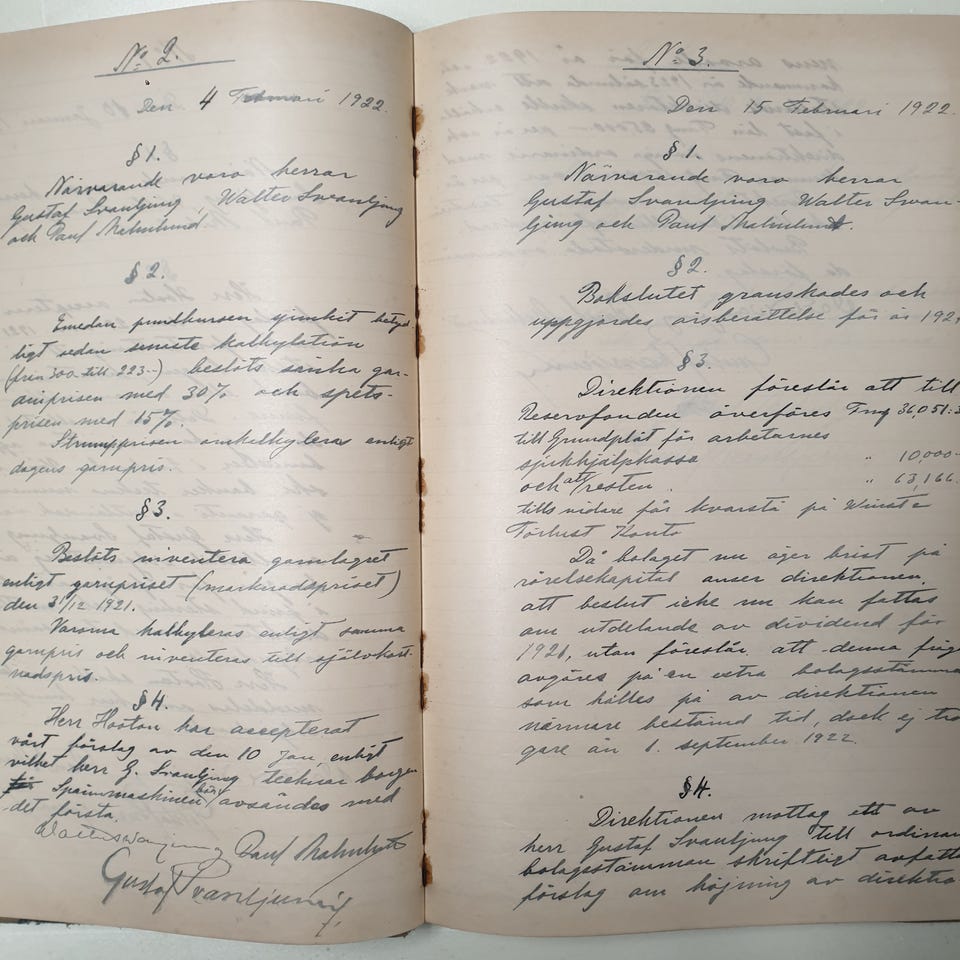 No 2.
Den 4 Februari 1922.
§ 1.
Närvarande voro herrar
Gustaf Svanljung, Walter Svanljung
och Paul Malmlund
§ 2.
Emedan pundkursen sjunkit betyd
ligt sedan senaste kalkylation
(från 300.- till 223.-) beslöts sänka gar-
ainprisen med 30% och spets-
prisen med 15%.
Strumpprisen omkalkyleras enligt
dagens garnpris.
§ 3.
Beslöts inventera garnlagret
enligt garnpriset (marknadspriset)
den 31/12 1921.
Varorna kalkyleras enligt samma
garnpris och inventeras till självkost-
nadspris.
§ 4.
Herr Hooton har accepterat
vårt förslag av den 10 Jan. enligt
vilket herr G. Svanljung tecknar borgen
Spännmaskinen bör avsändas med
det första.
Walter Svanljung Paul Malmlund
Gustaf Svanljung.
No 3.
Den 15 Februari 1922.
§ 1.
Närvarande voro herrar
Gustaf Svanljung Walter Svan-
ljung och Paul Malmlund.
§ 2.
Bokslutet granskades och
uppgjordes årsberättelse för år 192
§ 3.
Direktionen föreslår att till
Reservfonden överföres Fmg 36,051:3
till Grundplåt för arbetarnes
sjukhjälpkassa " 10,000.-
och att resten " 63,166.
tills vidare får kvarstå på Vinst &
Förlust Konto
Då bolaget nu äger brist på
rörelsekapital anser direktionen
att beslut icke nu kan fattas
om utdelande av dividend för
1921, utan föreslår, att denna fråga
avgöres på en extra bolagsstämma
som hålles på av direktionen
närmare bestämd tid, dock ej tidi
gare än 1. september 1922.
§ 4.
Direktionen mottog ett av
herr Gustaf Svanljung till ordinar
bolagsstämman skriftligt avfatta
förslag om höjning av direktio